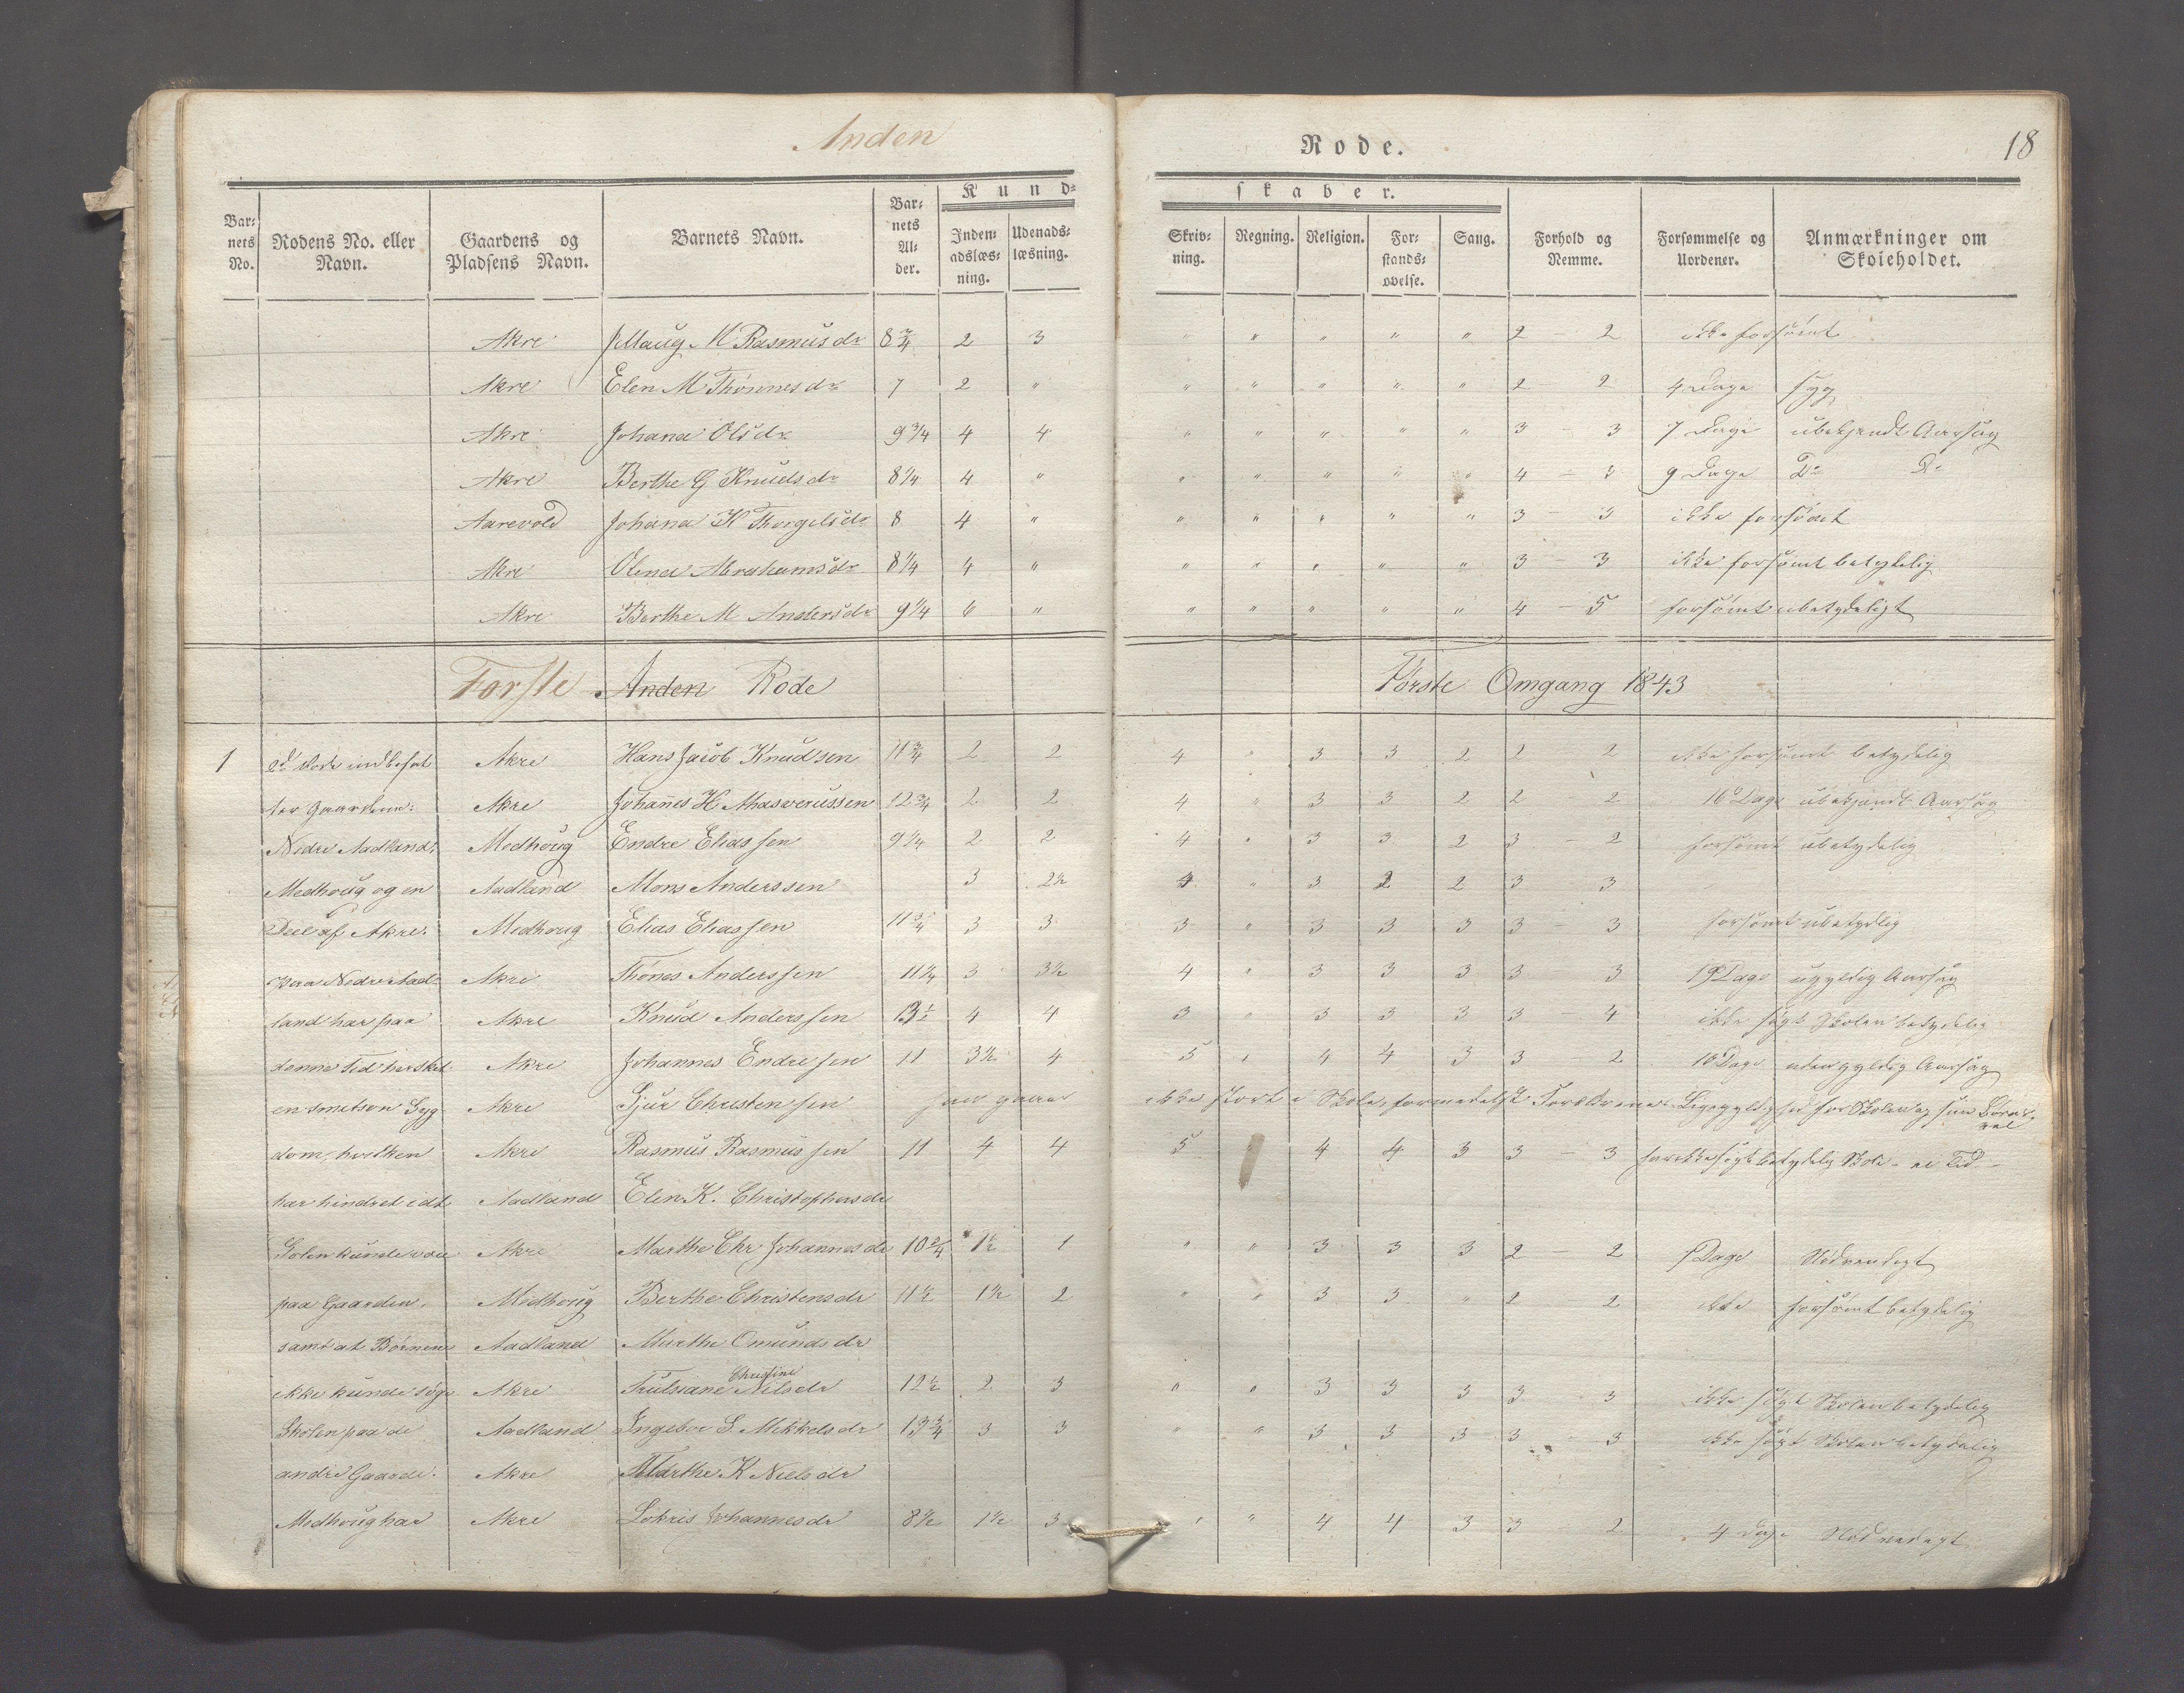 Anden
Rode.
18
Bar-
nets
No.
Rodens No. eller
Navn.
Gaardens og
Pladsens Navn.
Barnets Navn.
Bar-
nets
Al-
der.
Kund-
skaber.
Inden-
adslæs-
ning.
Udenads-
læsning.
Skriv-
ning.
Regning.
Religion.
For-
stands-
øvelse.
Sang.
Forhold og
Nemme.
Forsømmelse og
Uordener.
Anmærkninger om
Skoleholdet.
Akre M Rasmusdr 8 3/4 2 3 " " " " " 2 - 2 ikke forsømt
Akre Elen M Thønnesdr 7 2 " " " " " " 2 2 4 Dage syg
Akre Johana Olsdr 9 3/4 4 4 " " " " " 3 - 3 7 Dage ubekjendt Aarsag
Akre Berthe G Knudsdr 8 1/4 4 " " " " " " 4 - 3 9 Dage Do Do
Aarevold Johana K Thorgilsdr 8 4 " " " " " " 3 - 3 ikke forsømt
Akre Olena Abrahamsdr 8 1/4 4 " " " " " " 3 - 3 ikke forsømt betydelig
Akre Berthe M Andersdr 9 1/4 6 " " " " " " 4 - 5 forsømt ubetydeligt
Første Anden Rode Første Omgang 1843
1 Rode indbefat Akre Hans Jacob Knudsen 11 3/4 2 2 4 " 3 3 2 2 2 ikke forsømt betydelig
ter Gaardene: Akre Johanes H Ahasverussen 12 3/4 2 2 4 " 3 3 2 2 2 16 Dage ubekjendt Aarsag
Nedre Aadland, Medhoug Endre Eliassen 9 1/4 2 2 4 " 3 3 2 3 - 2 forsømt ubetydelig
Medhoug og en Aadland Mons Anderssen 3 2 1/2 4 " 3 2 2 3 - 3
Deel af Akre. Medhoug Elias Eliassen 11 3/4 3 3 3 " 3 3 3 3 - 3 forsømt ubetydlig
paa Nedre Aad- Akre Thönes Anderssen 11 1/4 3 3 1/2 4 " 3 3 3 3 3 19 Dage ugyldig Aarsag
land har paa Akre Knud Anderssen 13 1/2 4 4 3 " 3 3 3 3 - 4 ikke søgt Skolen betydelig
denne Tid hersket Akre Johannes Endresen 11 3 1/2 4 5 " 4 4 3 3 - 2 10 Dage uden gyldig Aarsag
en smetsom Syg Akre Gjur Christensen ikke stort i Skole, formedelst Forældrenes Ligegyldighed for Skolen og sine Børns
vel
dom, hvilken Akre Rasmus Rasmussen 11 4 4 5 " 4 4 3 3 - 3 har ikke søgt betydelig Skole
har hindret idt Aadland Elen K. Christophersdr
Skolen kunde være Akre Marthe Chr Johannesdr 10 3/4 1 1/2 1 " " 3 3 3 2 - 2 Dage Nødvendigt
paa Gaarden, Medhoug Berthe Christensdr 11 1/2 1 1/2 2 " " 3 3 " 2 - 2 ikke forsømt betydelig
samt at Børnene Aadland Marthe Omundsdr
Christine
ikke kunde søge Akre Nilsdr 12 1/2 2 3 " " 3 3 3 3 - 3 ikke søgt Skolen betydelig
Skolen paa de Aadland Ingebor S. Mikkelsdr 13 3/4 3 3 " " 3 3 3 3 - 3 ikke søgt Skolen betydelig
andre Gaarde. Akre Marthe K Nielsdr
Medhoug har Akre Johannesdr 8 1/2 1 1/2 3 " " 4 4 3 3 - 2 4 Dage Nødvendigt